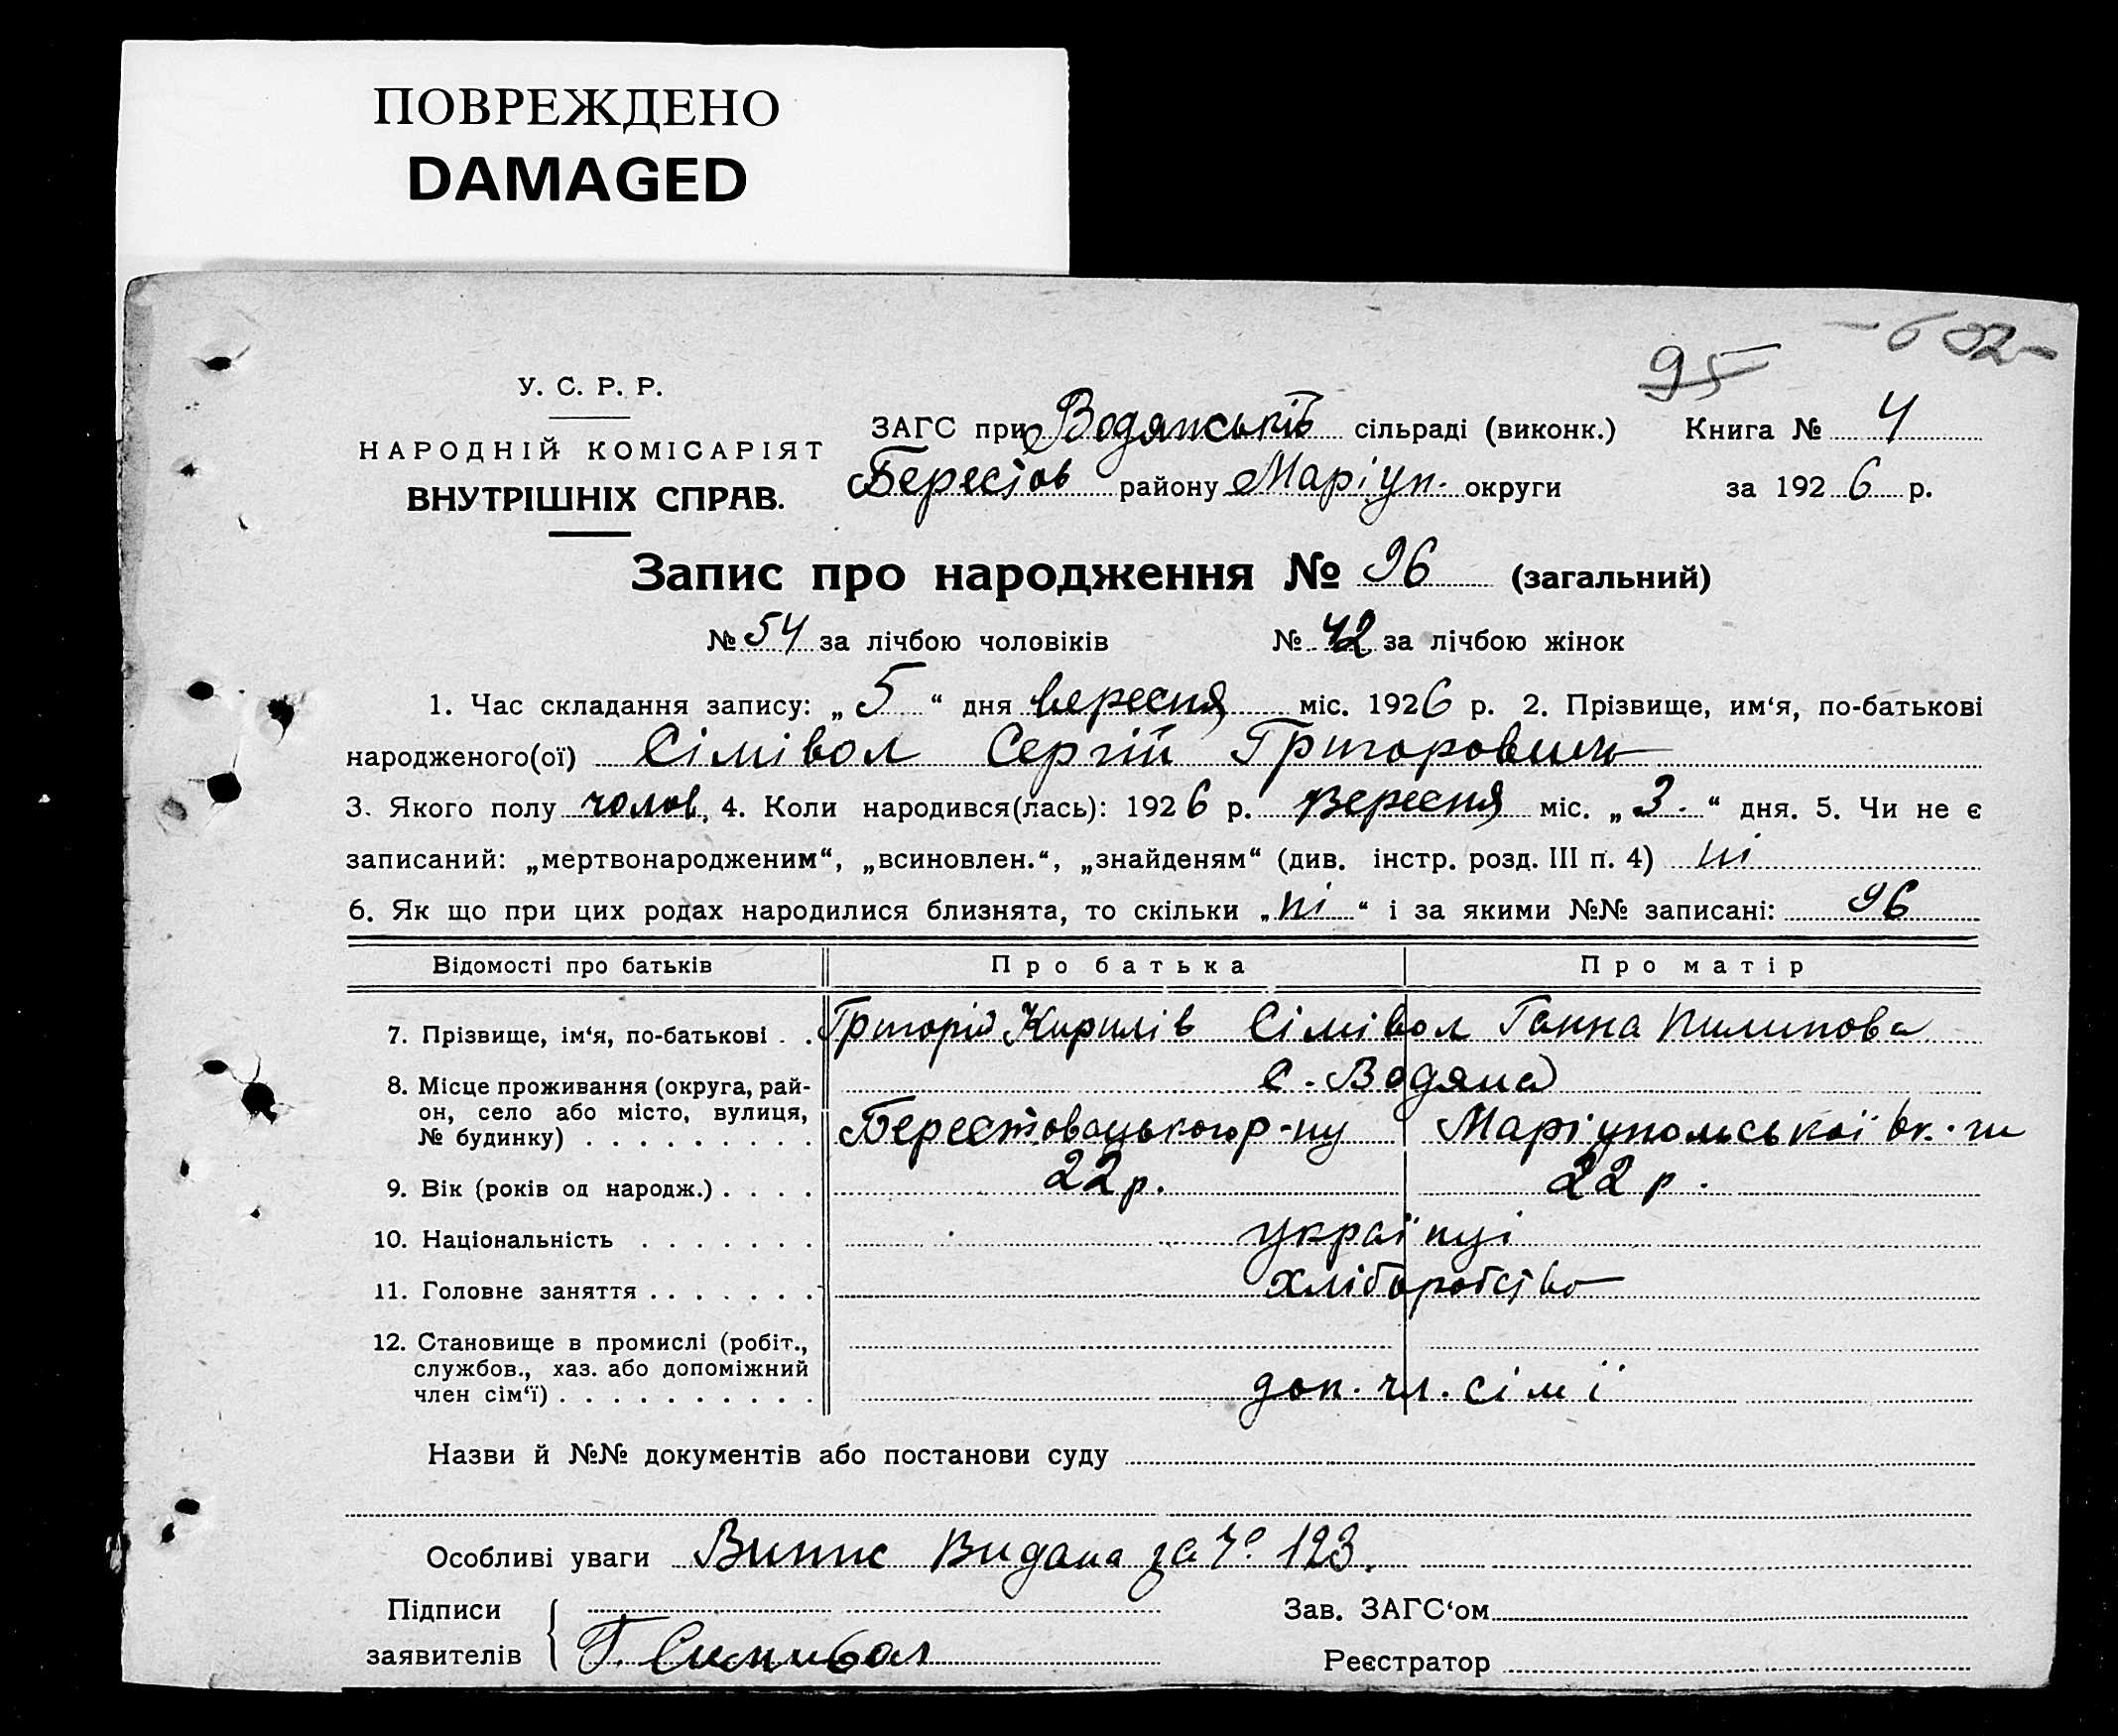 ПОВРЕЖДЕНО
DAMAGED
95 602
У. С. Р. Р.
НАРОДНІЙ КОМІСАРІЯТ
ВНУТРІШНІХ СПРАВ.
ЗАГС при Водянській сільраді (виконк.) Книга № 4
Берестов району Маріуп. округи за 1926 р.
Запис про народження № 96 (загальний)
№ 54 за лічбою чоловіків № 42 за лічбою жінок
1. Час складання запису: „5“ дня вересня міс. 1926 р. 2. Прізвище, им‘я, по-батькові
народженого(ої) Сімівол Сергій Григорович
3. Якого полу чолов, 4. Коли народився(лась): 1926 р. вересня міс. „3.“ дня. 5. Чи не є
записаний: „мертвонародженим“, „всиновлен.“, „знайденям“ (див. інстр. розд. III п. 4) ні
6. Як що при цих родах народилися близнята, то скільки „ні“ і за якими №№ записані: 96
Відомості про батьків Про батька Про матір
7. Прізвище, ім‘я, по-батькові . . Григорій Кирилів Сімівол Ганна Пилипова
8. Місце проживання (округа, рай-
он, село або місто, вулиця,
№ будинку) . . . . . . . . .
с. Водяна
Берестовацького р-ну Маріупольської ок.-ги
9. Вік (років од народж.) . . . . 22 р. 22 р.
10. Національність . . . . . . . українці
11. Головне заняття . . . . . . . хліборобство
12. Становище в промислі (робіт.,
службов., хаз. або допоміжний
член сім‘ї) . . . . . . . . . . доп. чл. сімї
Назви й №№ документів або постанови суду
Особливі уваги Випис видана за № 123.
Підписи
заявителів Г. Симивол
Зав. ЗАГС‘ом
Реєстратор